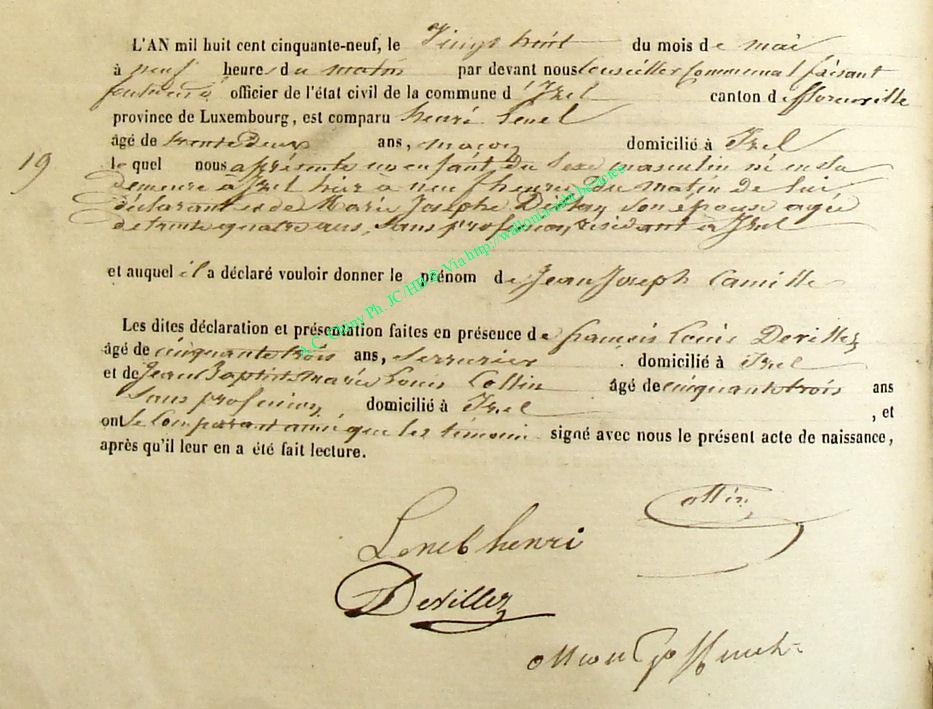 L'AN mil huit cent cinquante-neuf, le Vingt huit du mois de mai
à neuf heure du matin par devant nous Conseiller Communal faisant
officier de l'état civil de la commune d'Izel canton de florenville
province de Luxembourg, est comparu henri Lenel
âgé de trente deux ans, maçon domicilié à Izel
19
le quel nous a présenté un enfant du sexe masculin né en sa
demeure à Izel hier a neuf heures du matin de lui
déclarant et de Marie Josephe son épouse agée
de trente quatre ans, sans profession, résidant à Izel
et auquel il a déclaré vouloir donner le prénom de Jean Joseph Camille
Les dites déclaration et présentation faites en présence de françois Louis Devillez
âgé de cinquante trois ans, serrurier domicilié à Izel
et de Jean Baptiste Marie Louis Collin âgé de cinquante trois ans
sans profession, domicilié à Izel , et
ont le Comparant ainsi que les témoins signé avec nous le présent acte de naissance,
après qu'il leur en a été fait lecture.
Lenel henri
Devillez
A.C. Chiny Ph. JC/HW® Via http://wallonia-asbl.be/actes